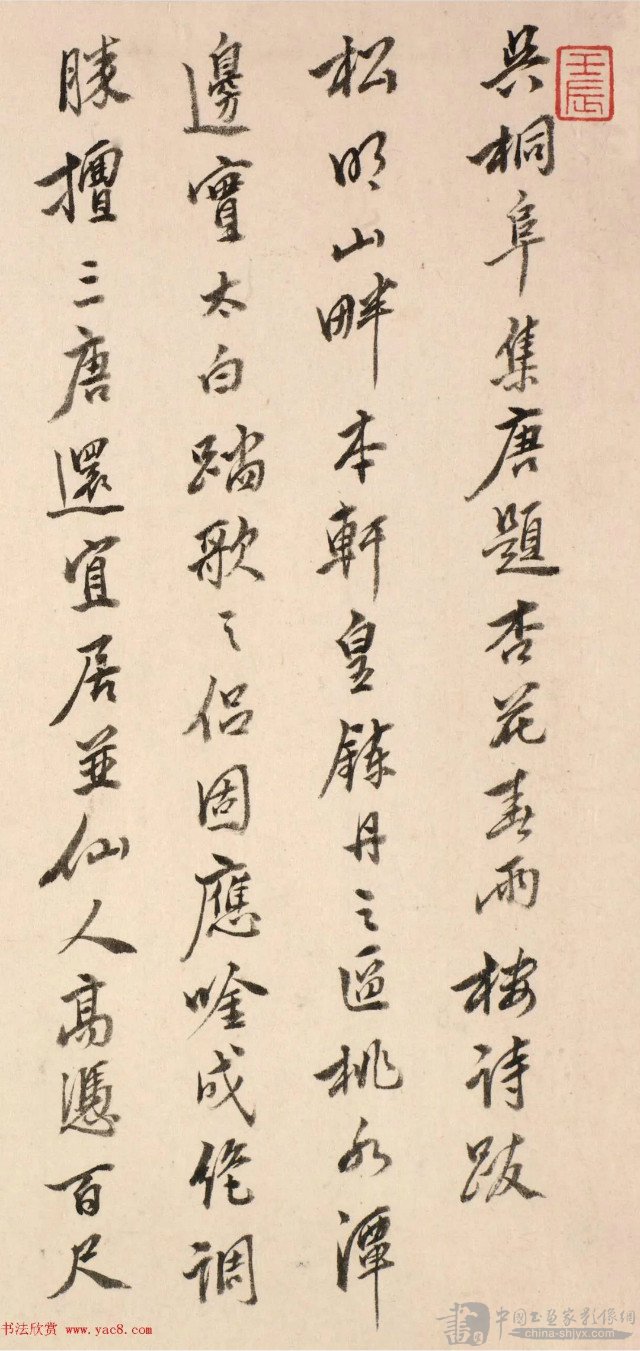 壬辰
吳桐阜集唐題杏花春雨樓詩跋
松明山畔本軒皇鍊丹之區桃水潭
邊實太白踏歌之侶固應唫成絕調
勝擅三唐還宜居並仙人高憑百尺
书法欣赏 www.yac8.com
中国书画家影像網
china-shjyx.com